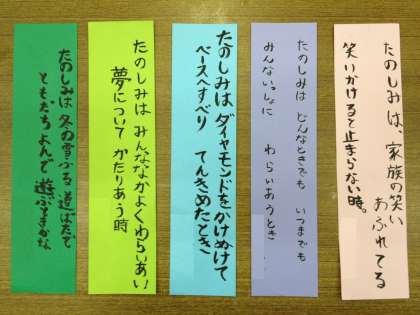 たのしみは、家族の笑い
あふれてる
笑いかけると止まらない時。
たのしみは どんなときでも いつまでも
みんないっしょに わらいあうとき
たのしみは ダイヤモンドをかけぬけて
ベースへすべり てんきめたとき
たのしみは みんななかよくわらいあい
夢について かたりあう時
たのしみは 冬の雪ふる 道ばたで
ともだちよんで 遊ぶときかな